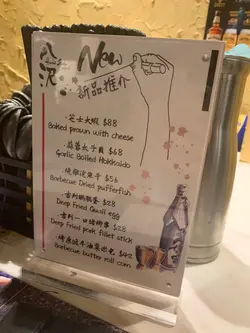 八沢
New
新品推介
·芝士大蝦 $88
Baked prawn with cheese
·蒜蓉太子貝 $68
Garlic Boiled Hokkaido
·燒原浪魚干 $56
Barbecue Dried pufferfish
·吉列鵪鶉蛋 $28
Deep Fried Quail egg
·吉列一口豬柳串 $28
Deep Fried pork fillet stick
·燒原波牛油粟米 $42
Barbecue butter roll corn